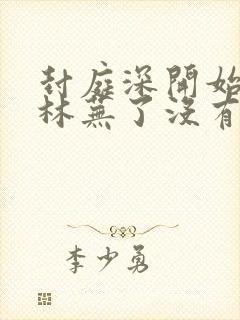 封庭深開始
林蕪了沒有
李少勇